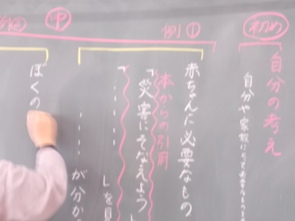 初め
自分の考え
自分や家族にとって
中
例①
赤ちゃんに必要なもの
本からの引用
「災害にそなえよう
」を
が分か
例②
ぼくの